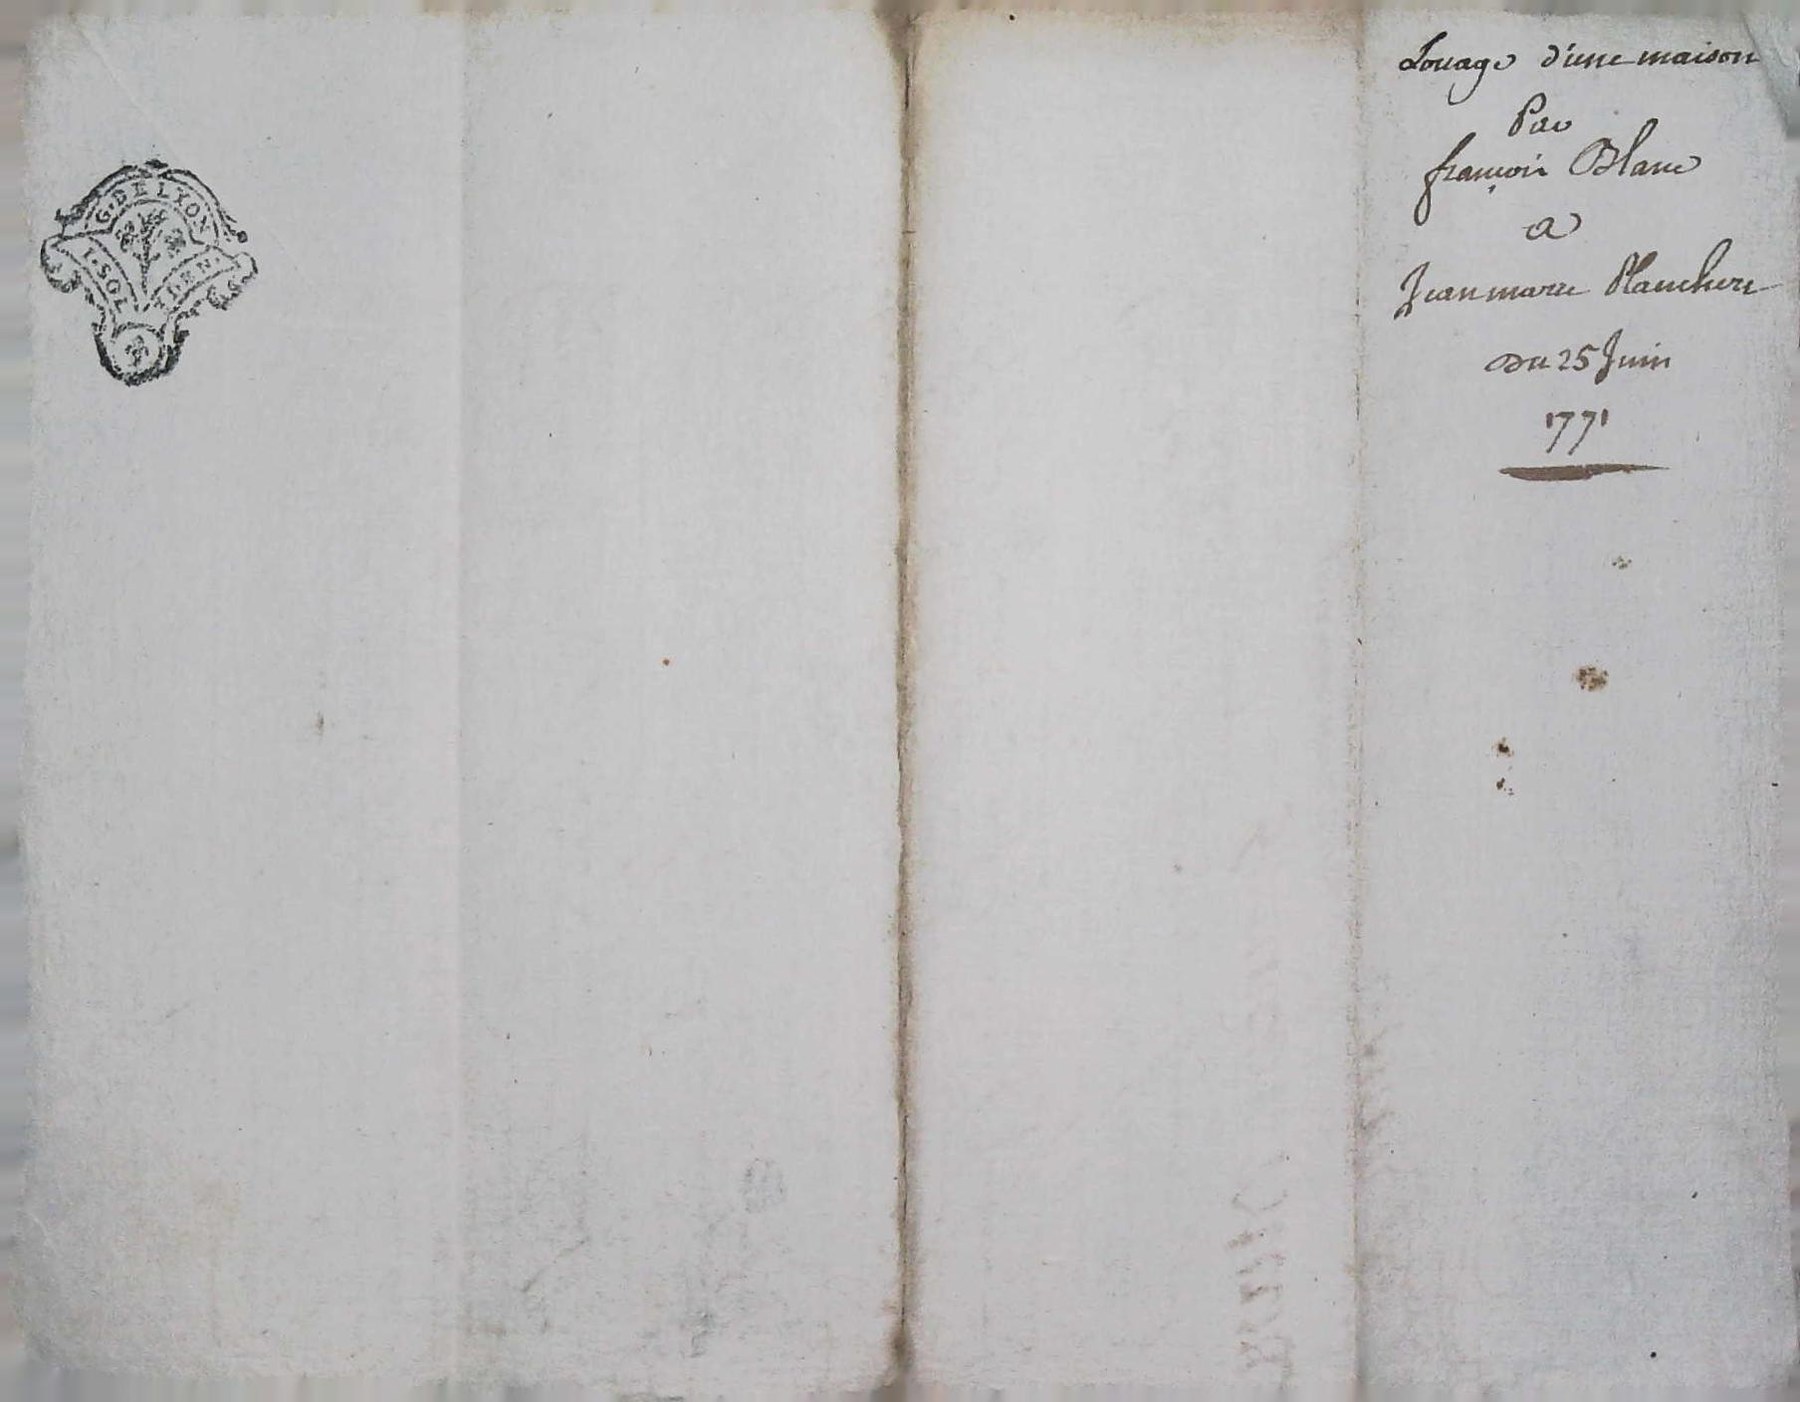 G. DE LYON
1. SOL
Louage d'une maison
Par
françois Blanc
a
Jean marie Planchere
Du 25 Juin
1771